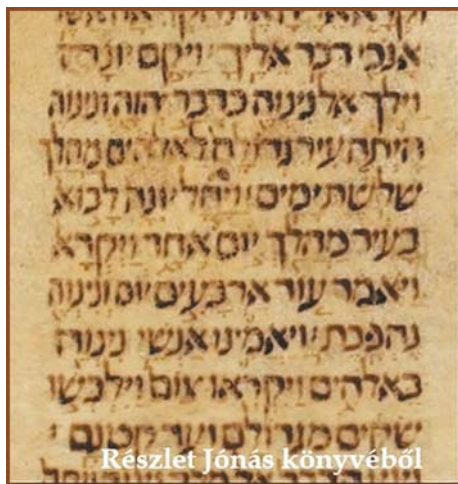 אנכי דבר אליך ויקם יונה
וילך אל נינוה כדבר יהוה ונינוה
היתה עיר גדולה לאלהים מהלך
שלשת ימים ויחל יונה לבוא
בעיר מהלך יום אחד ויקרא
ויאמר עוד ארבעים יום ונינוה
נהפכת ויאמינו אנשי נינוה
באלהים ויקראו צום וילבשו
שקים מגדולם ועד קטנם
Részlet Jónás könyvéből